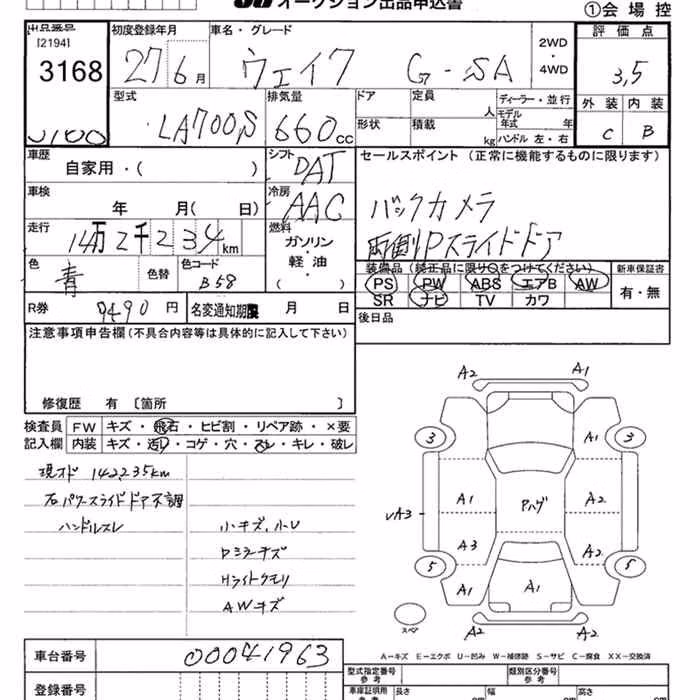 オークション出品申込書
①会場控
出品番号 初度登録年月 車名・グレード 2WD・4WD 評価点
[2194]
3168 27年6月 ウェイク G-SA 3,5
型式 排気量 ドア 定員 人 ディーラー・並行 外装 内装
LA700S 660cc 形状 積載 kg モデル年式 年 ハンドル 左・右 C B
車歴 自家用・( ) シフト DAT セールスポイント (正常に機能するものに限ります)
車検 年 月( 日) 冷房 AAC バックカメラ
走行 14万2千234km 燃料 ガソリン 軽油・( ) 両側Pスライドドア
色 青 色替 色コード B58 装備品 (純正品に限り○をつけてください) 新車保証書
PS PW ABS エアB AW 有・無
SR ナビ TV カワ
R券 7490円 名変通知期限 月 日 後日品
注意事項申告欄(不具合内容等は具体的に記入して下さい)
修復歴 有 〔箇所 〕
検査員 FW キズ・飛石・ヒビ割・リペア跡・×要
記入欄 内装 キズ・汚れ・コゲ・穴・スレ・キレ・破レ
現オド 142235km
右パワースライドドア不調
ハンドルスレ 小キズ、小U
Dミラーキズ
Hライトクモリ
AWキズ
A2 A1
3 A1 3
A1 Pハゲ A2
A3 A3 A2
5 A1 A1 5
スペア A2 A2
A-キズ E-エクボ U-凹み W-補修跡 S-サビ C-腐食 XX-交換済
車台番号 00041963
登録番号 型式指定番号 参考 類別区分番号 参考
車庫証明用 参考 長さ cm 幅 cm 高さ cm